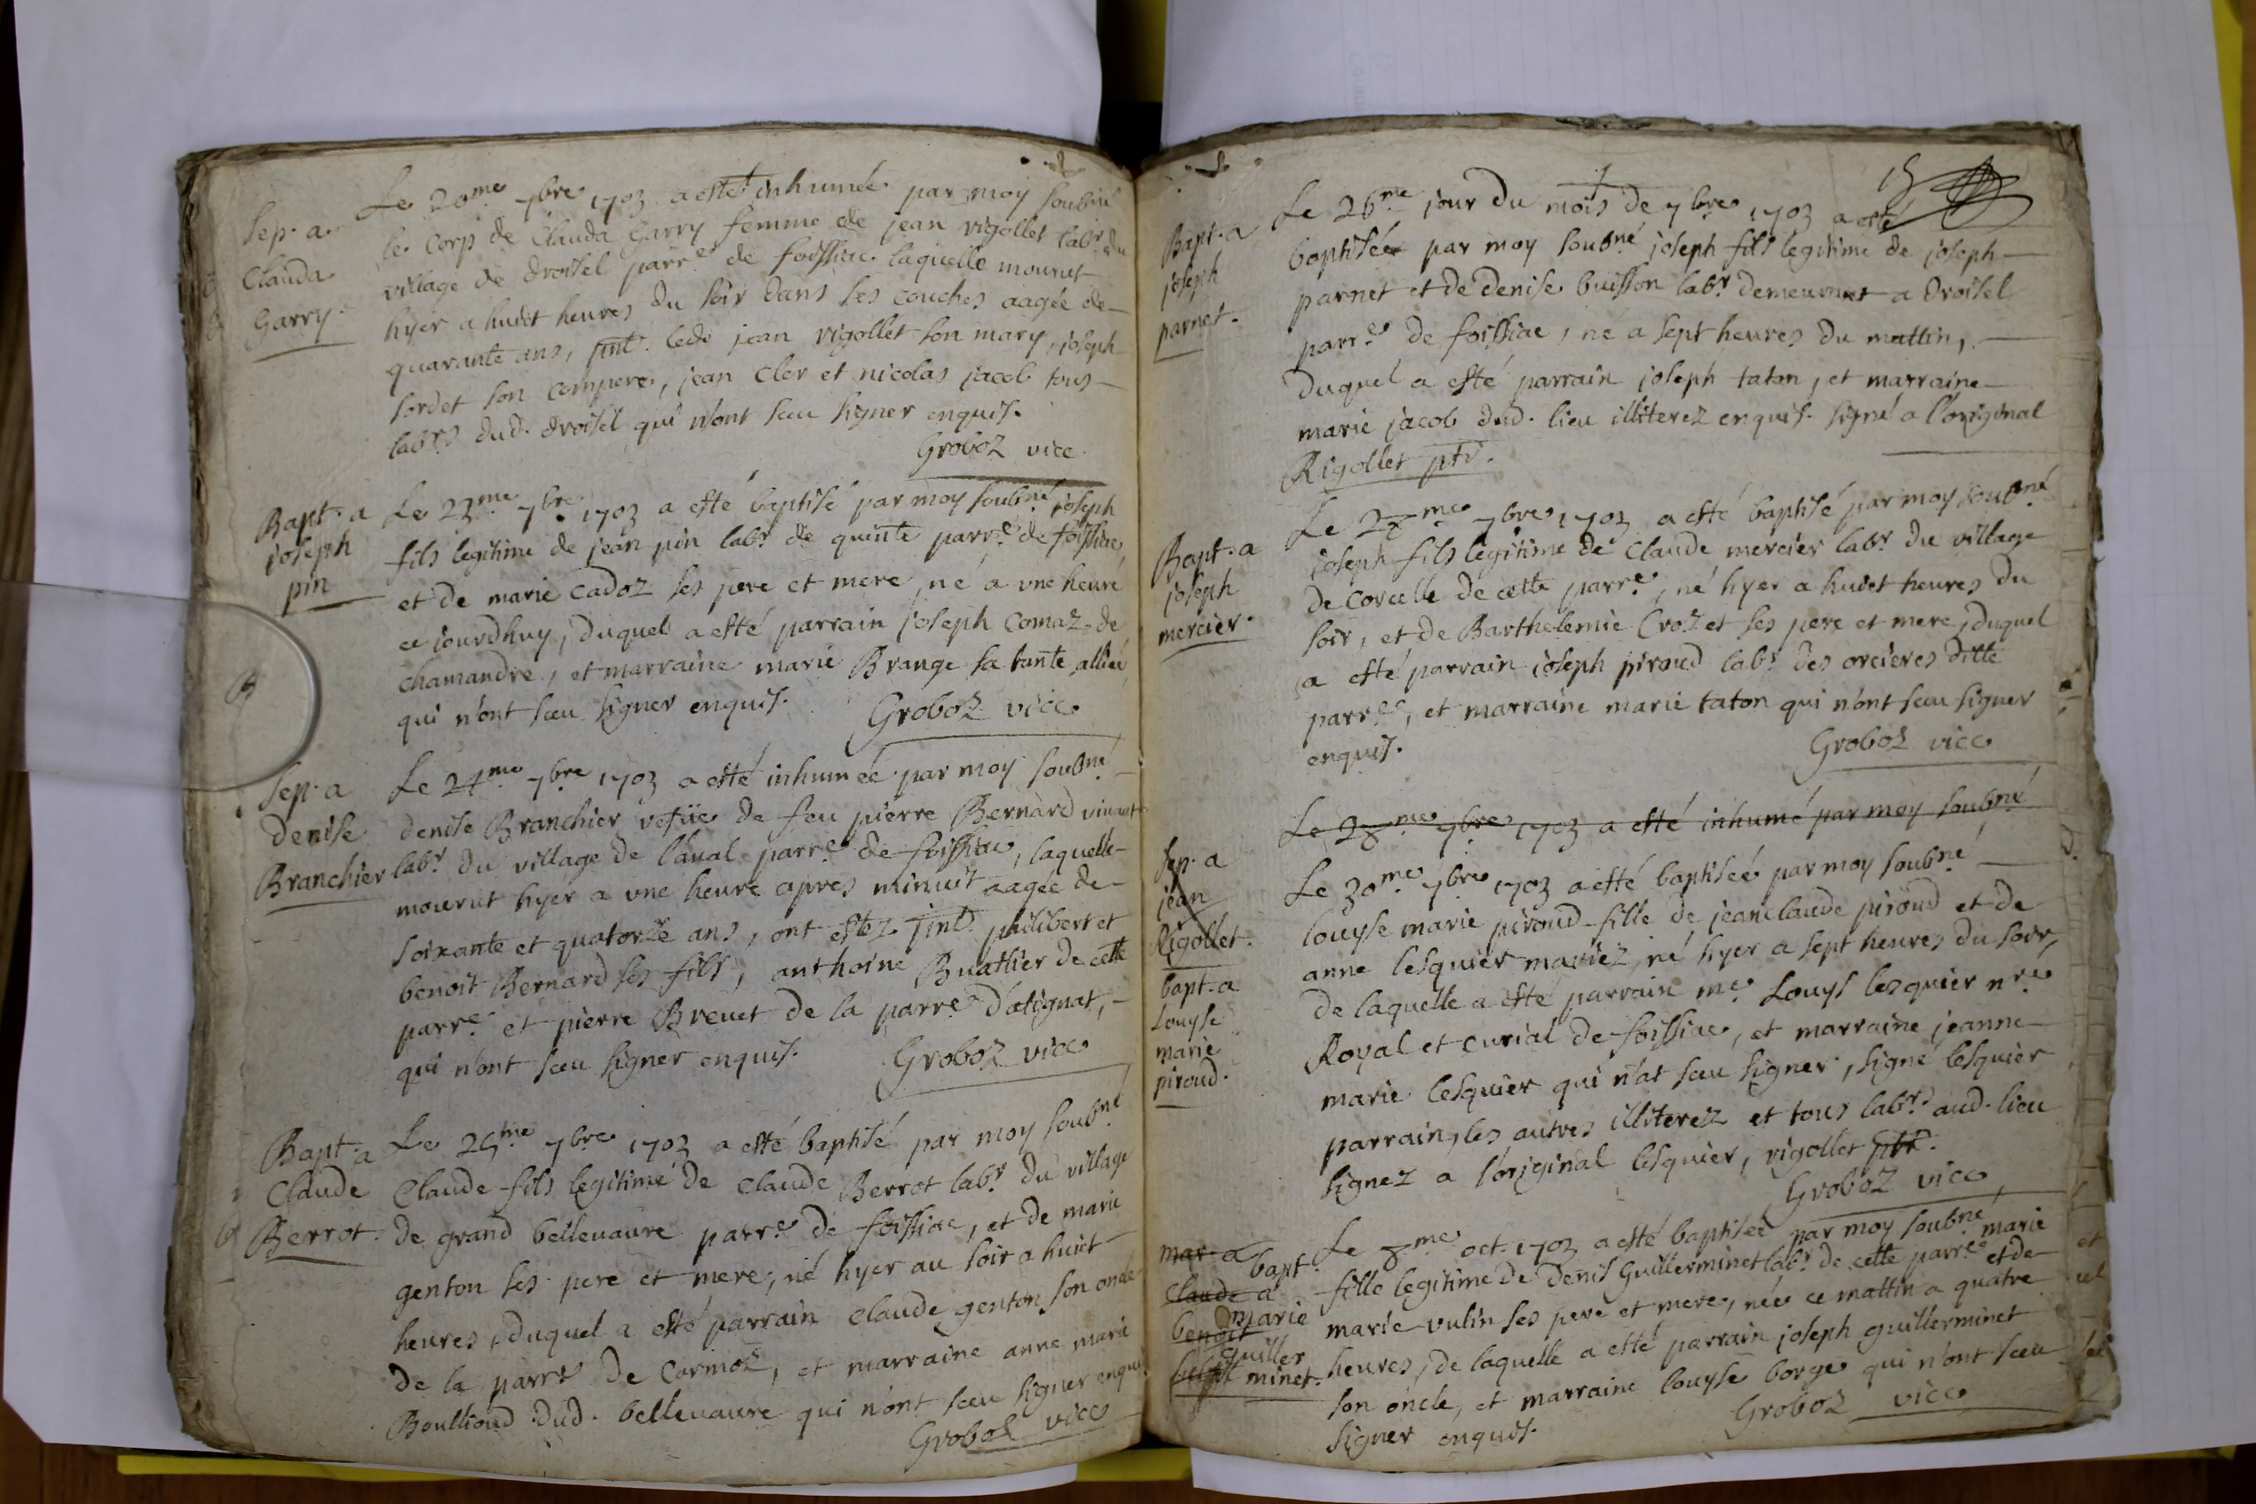 Sep. a
Clauda
Garry.
Le 20me 7bre 1703 a esté inhumée par moy soubné
le corp de Clauda Garry femme de jean vigollet labr du
village de droisel parre de foissiac laquelle mourut
hyer a huict heures du soir dans ses couches aagée de
quarante ans, pnt. led. jean vigollet son mary, joseph
sordet son compere, jean cler et nicolas jacob tous
labrs dud. droisel qui n'ont sceu signer enquis.
Groboz vicc
Bapt. a
joseph
pin
Le 23me 7bre 1703 a esté baptisé par moy soubné joseph
fils legitime de jean pin labr de quinte parre de foissiac
et de marie cadoz ses pere et mere, né a vne heure
ce jourdhuy, duquel a esté parrain joseph comaz de
chamandre, et marraine marie Brange sa tante alliée
qui n'ont sceu signer enquis.
Groboz vicc
Sep. a
denise
Branchier
Le 24me 7bre 1703 a esté inhumée par moy soubné
denise Branchier vefüe de feu pierre Bernard vivant
labr du village de laval parre de foissiac, laquelle
mourut hyer a vne heure apres minuit aagée de
soixante et quatorze ans, ont estez pnts philibert et
benoit Bernard ses fils, anthoine Buathier de cette
parre et pierre Brevet de la parre d'atignat,
qui n'ont sceu signer enquis.
Groboz vicc
Bapt. a
Claude
Berrot.
Le 25me 7bre 1703 a esté baptisé par moy soubné
Claude fils legitime de Claude Berrot labr du village
de grand bellevaure parre de foissiac, et de marie
genton ses pere et mere, né hyer au soir a huict
heures, duquel a esté parrain claude genton son oncle
de la parre de Cormoz, et marraine anne marie
Boullioud dud. bellevaure qui n'ont sceu signer enquis
Groboz vicc
Bapt. a
joseph
parnet.
Le 26me jour du mois de 7bre 1703 a esté
baptisée par moy soubné joseph fils legitime de joseph
parnet et de denise buisson labr demeurant a droisel
parre de foissiac, né a sept heures du mattin,
duquel a esté parrain joseph taton, et marraine
marie jacob dud. lieu illiterez enquis. signé a l'original
Rigollet ptr.
Bapt. a
joseph
mercier.
Le 28me 7bre 1703 a esté baptisé par moy soubné
joseph fils legitime de Claude mercier labr du village
de corcelle de cette parre, né hyer a huict heures du
soir, et de Barthelemie Croz et ses pere et mere, duquel
a esté parrain joseph piroud labr des orcieres ditte
parre, et marraine marie taton qui n'ont sceu signer
enquis.
Groboz vicc
Le 28me 7bre 1703 a esté inhumé par moy soubné
Sep. a
jean
Rigollet.
bapt. a
Louyse
marie
piroud.
Le 30me 7bre 1703 a esté baptisée par moy soubné
louyse marie piroud fille de jeanclaude piroud et de
anne lesquier mariez, né hyer a sept heures du soir,
de laquelle a esté parrain me Louys lesquier nre
Royal et curial de foissiac, et marraine jeanne
marie lesquier qui n'at sceu signer, signé lesquier
parrain, les autres illiterez et tous labrs aud. lieu
signez a l'original lesquier, rigollet ptr.
Groboz vicc
mar a
Claude a
benoit
bapt
marie
guiller
minet.
Le 8me oct. 1703 a esté baptisée par moy soubné marie
fille legitime de denis Guillerminet labr de cette parre et de
marie vulin ses pere et mere, née ce mattin a quatre
heures, de laquelle a esté parrain joseph guillerminet
son oncle, et marraine louyse borge qui n'ont sceu
signer enquis.
Groboz vicc